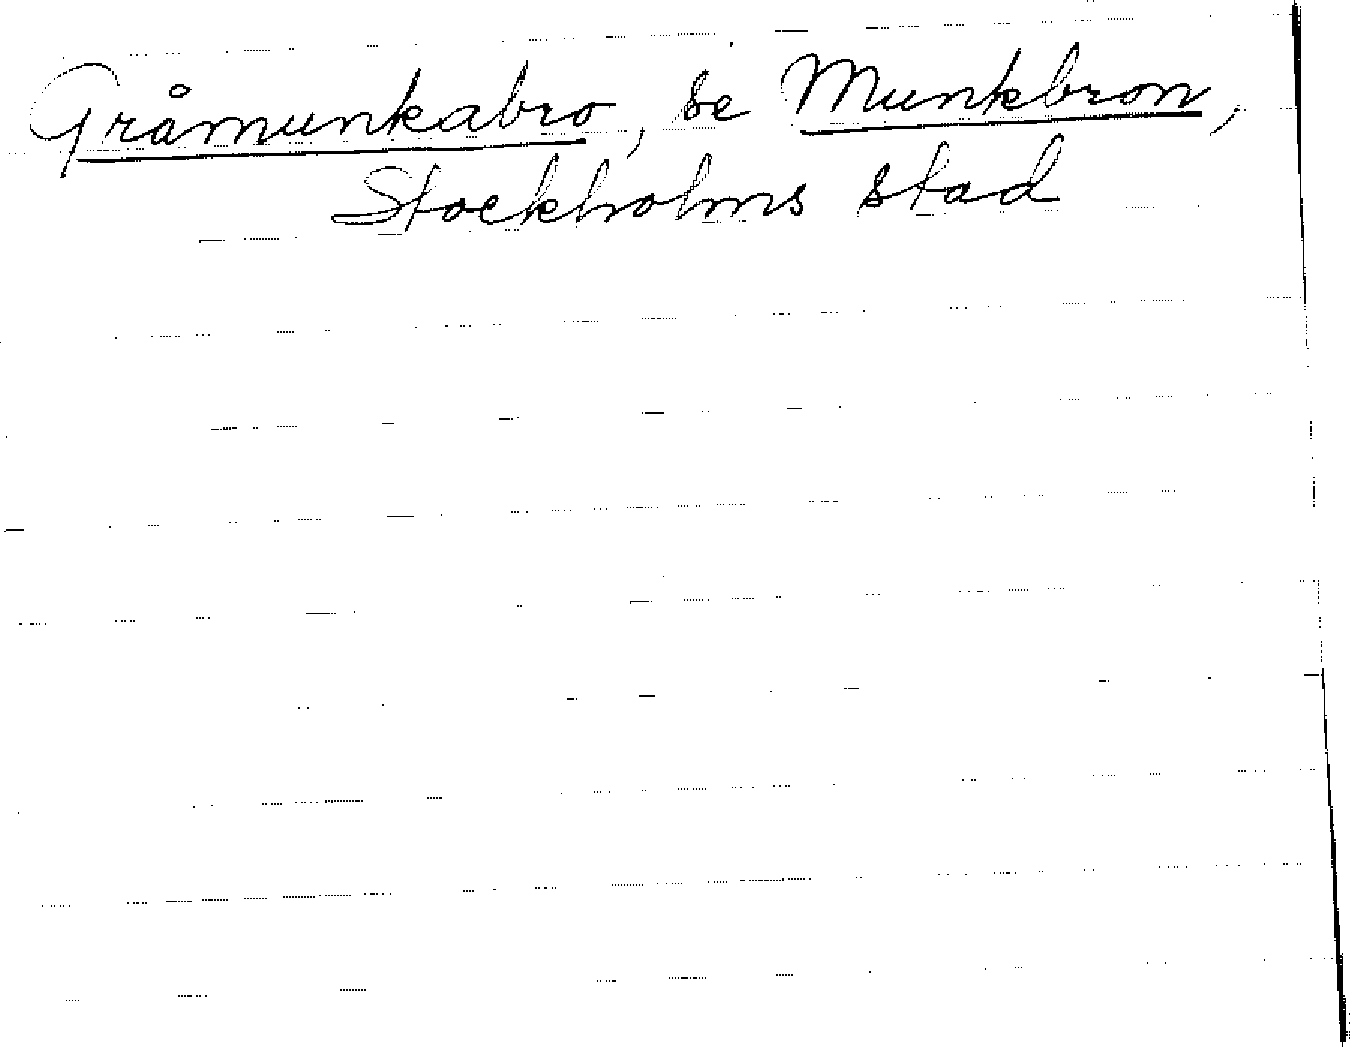 Gråmunkabro, se Munkbron,
Stockholms stad